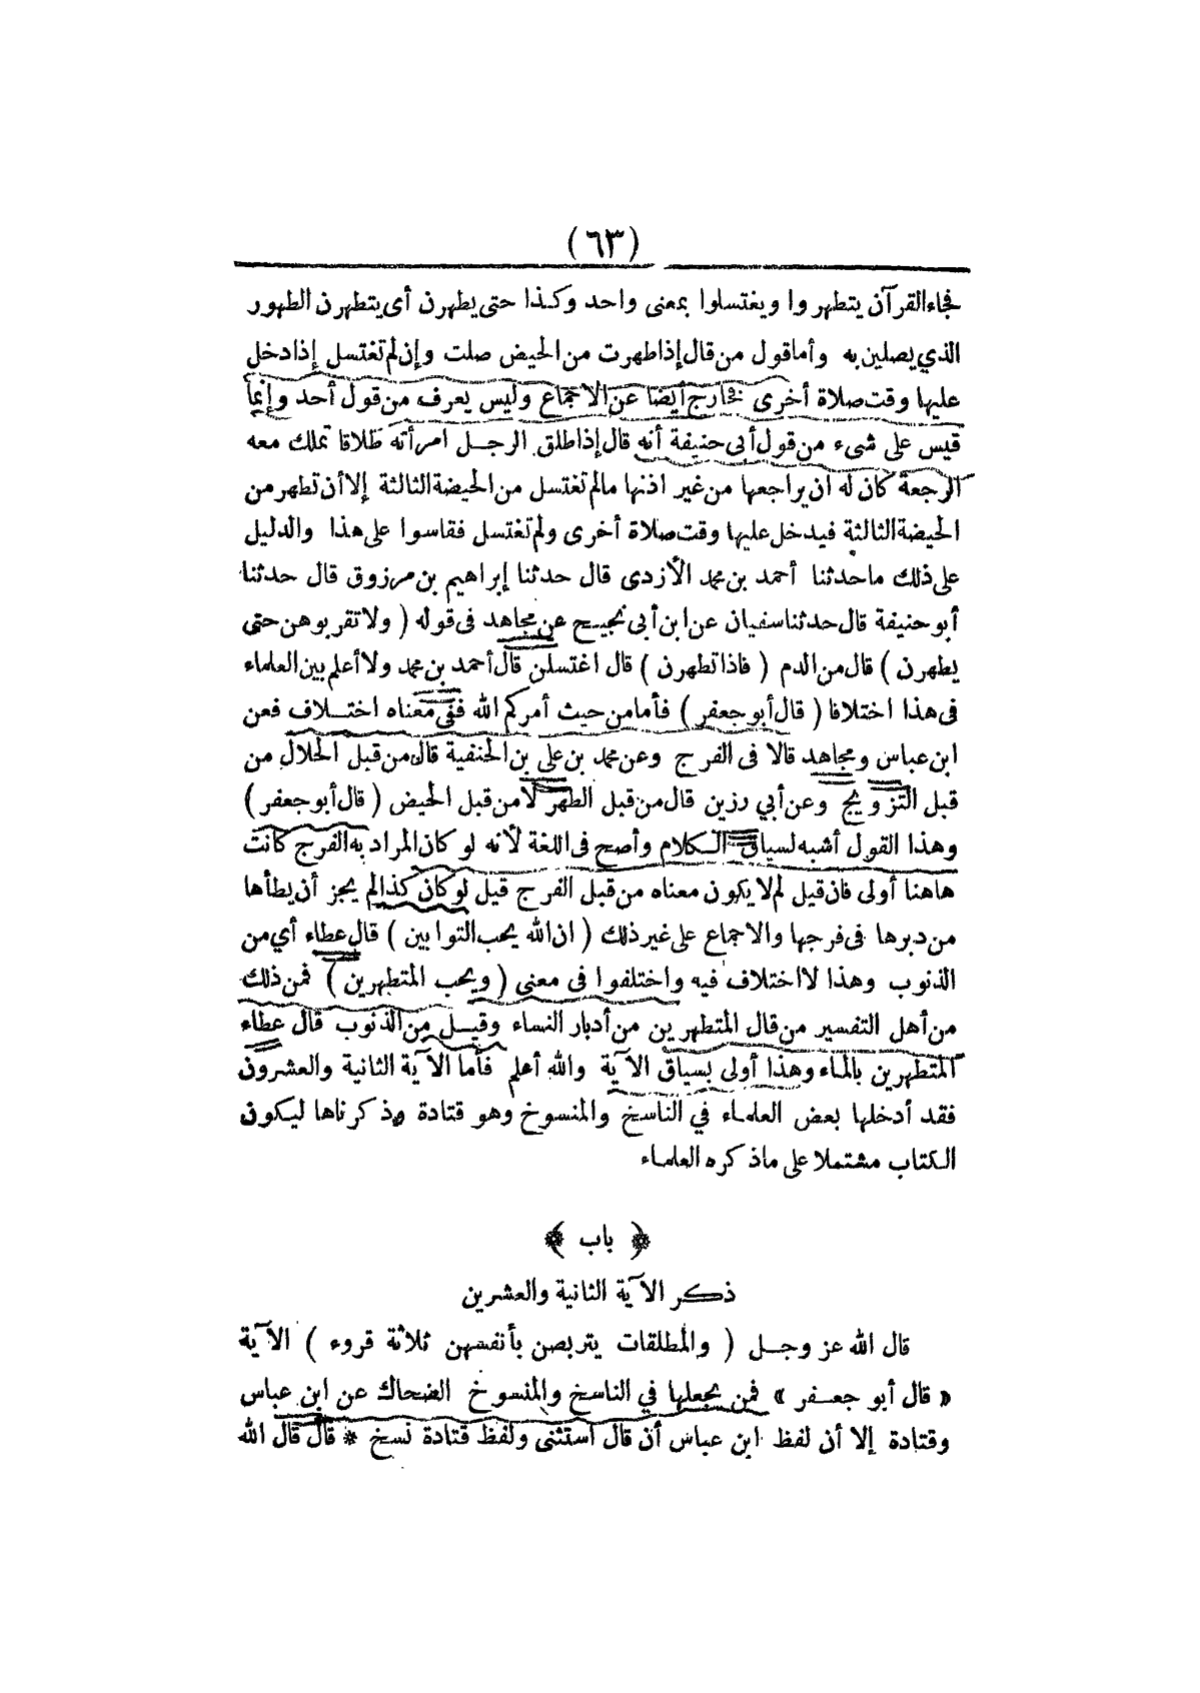 (٦٣)
فجاء القرآن يتطهروا ويغتسلوا بمعنى واحد وكذا حتى يطهرن أى يتطهرن الطهور
الذي يصلين به وأما قول من قال إذا طهرت من الحيض صلت وإن لم تغتسل إذا دخل
عليها وقت صلاة أخرى فخارج أيضا عن الاجماع وليس يعرف من قول أحد وإنما
قيس على شىء من قول أبى حنيفة أنه قال إذا طلق الرجل امرأته طلاقا تملك معه
الرجعة كان له ان يراجعها من غير اذنها مالم تغتسل من الحيضة الثالثة إلا أن تطهر من
الحيضة الثالثة فيدخل عليها وقت صلاة أخرى ولم تغتسل فقاسوا على هذا والدليل
على ذلك ما حدثنا أحمد بن محمد الأزدى قال حدثنا إبراهيم بن مرزوق قال حدثنا
أبو حنيفة قال حدثنا سفيان عن ابن أبى نجيح عن مجاهد فى قوله ( ولا تقربوهن حتى
يطهرن ) قال من الدم ( فاذا تطهرن ) قال اغتسلن قال أحمد بن محمد ولا أعلم بين العلماء
فى هذا اختلافا ( قال أبو جعفر ) فأما من حيث أمركم الله ففى معناه اختلاف فعن
ابن عباس ومجاهد قالا فى الفرج وعن محمد بن على بن الحنفية قال من قبل الحلال من
قبل التزويج وعن أبي رزين قال من قبل الطهر لا من قبل الحيض ( قال أبو جعفر )
وهذا القول أشبه لسياق الكلام وأصح فى اللغة لأنه لو كان المراد به الفرج كانت
هاهنا أولى فان قيل لم لا يكون معناه من قبل الفرج قيل لو كان كذا لم يجز أن يطأها
من دبرها فى فرجها والاجماع على غير ذلك ( ان الله يحب التوابين ) قال عطاء أي من
الذنوب وهذا لا اختلاف فيه واختلفوا فى معنى ( ويحب المتطهرين ) فمن ذلك
من أهل التفسير من قال المتطهرين من أدبار النساء وقيل من الذنوب قال عطاء
المتطهرين بالماء وهذا أولى بسياق الآية والله أعلم فأما الآية الثانية والعشرون
فقد أدخلها بعض العلماء في الناسخ والمنسوخ وهو قتادة وذكرناها ليكون
الكتاب مشتملا على ما ذكره العلماء
﴿ باب ﴾
ذكر الآية الثانية والعشرين
قال الله عز وجل ( والمطلقات يتربصن بأنفسهن ثلاثة قروء ) الآية
« قال أبو جعفر » فمن يجعلها في الناسخ والمنسوخ الضحاك عن ابن عباس
وقتادة إلا أن لفظ ابن عباس أن قال استثنى ولفظ قتادة نسخ * قال قال الله